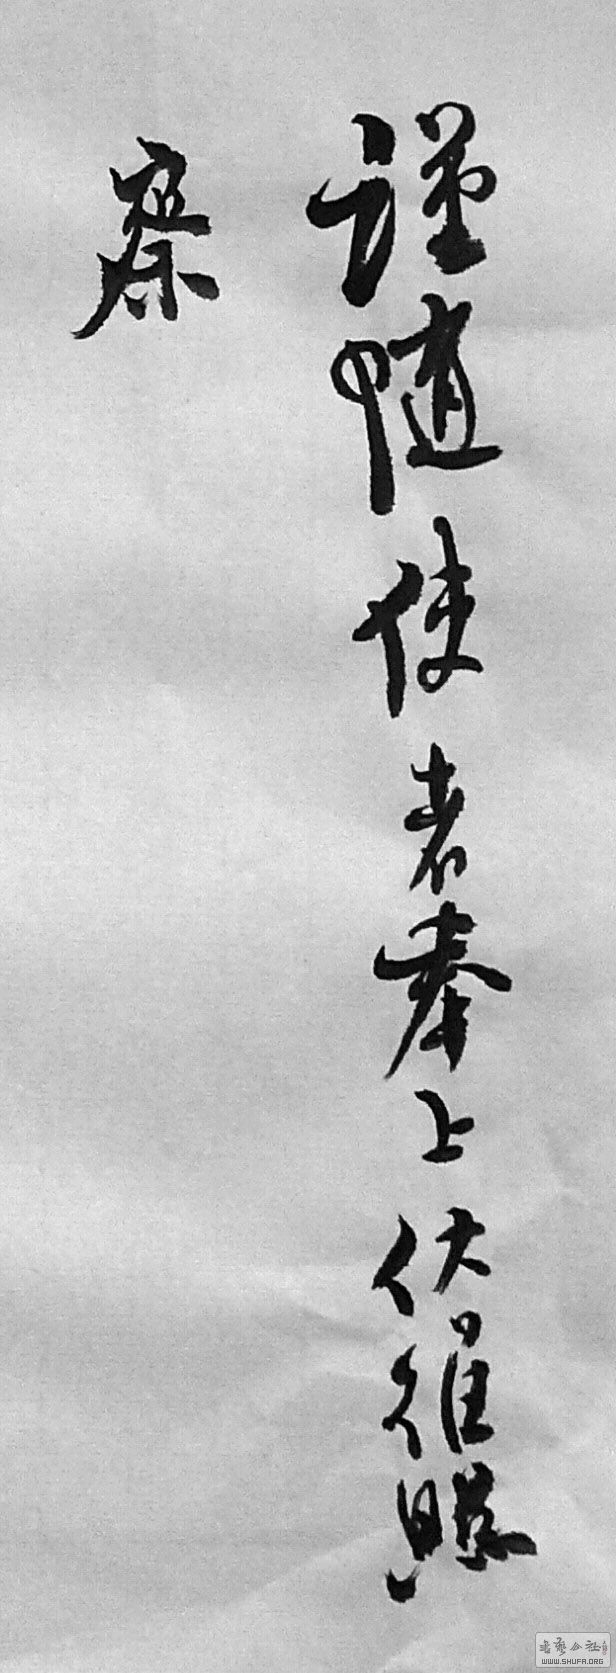 謹随使者奉上伏惟照
察
書藝公社
WWW.SHUFA.ORG